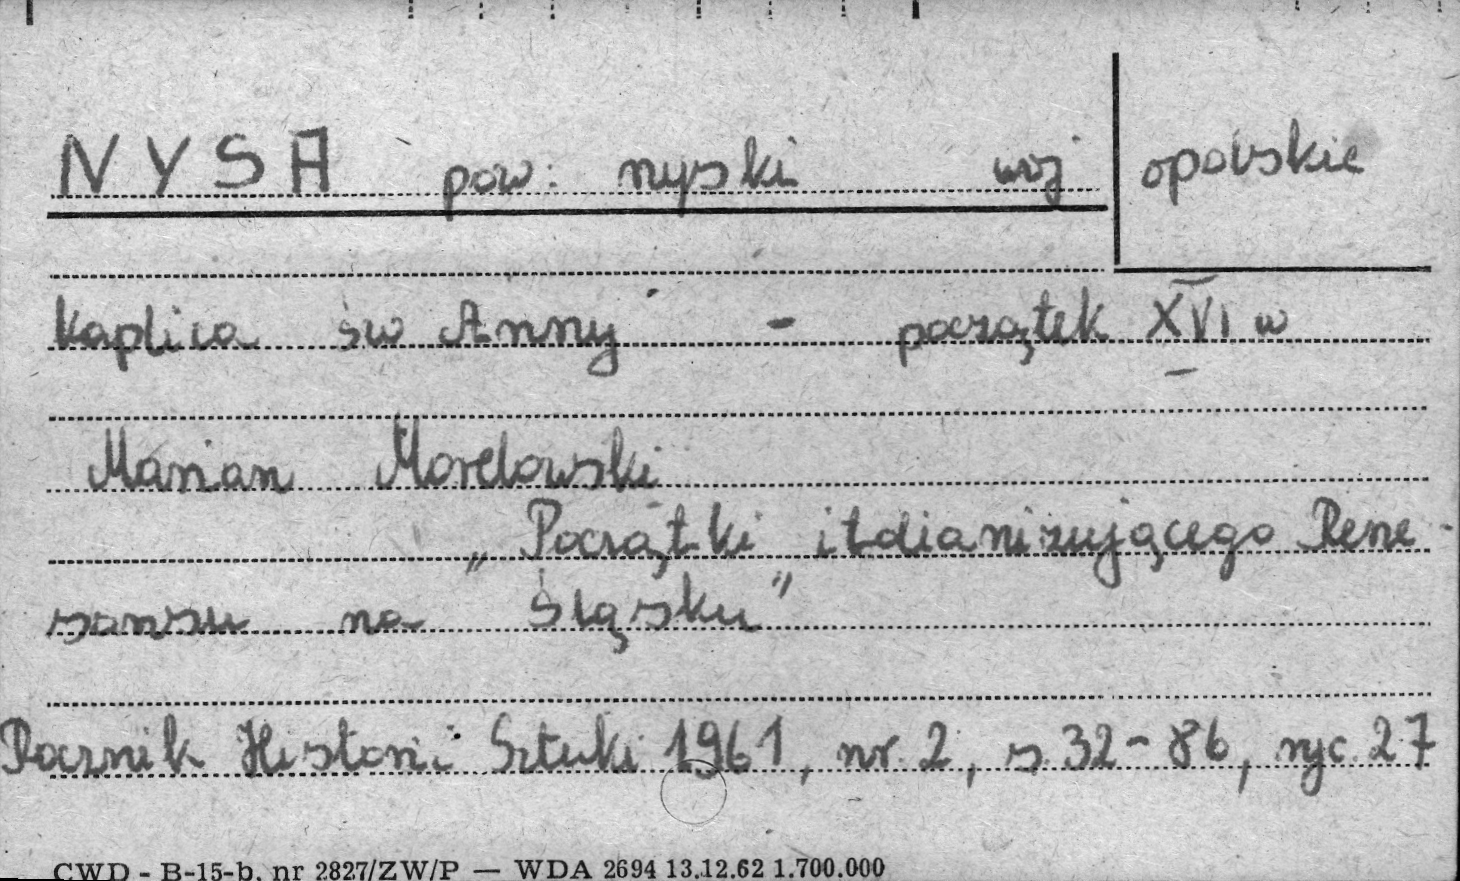 NYSA pow: nyski woj opolskie
Kaplica św Anny - początek XVI w
Marian Morelowski
„Początki italianizującego Rene-
sansu na Śląsku”
Rocznik Historii Sztuki 1961, nr. 2, s. 32-86, ryc. 27
CWD - B-15-b, nr 2827/ZW/P — WDA 2694 13.12.62 1.700.000